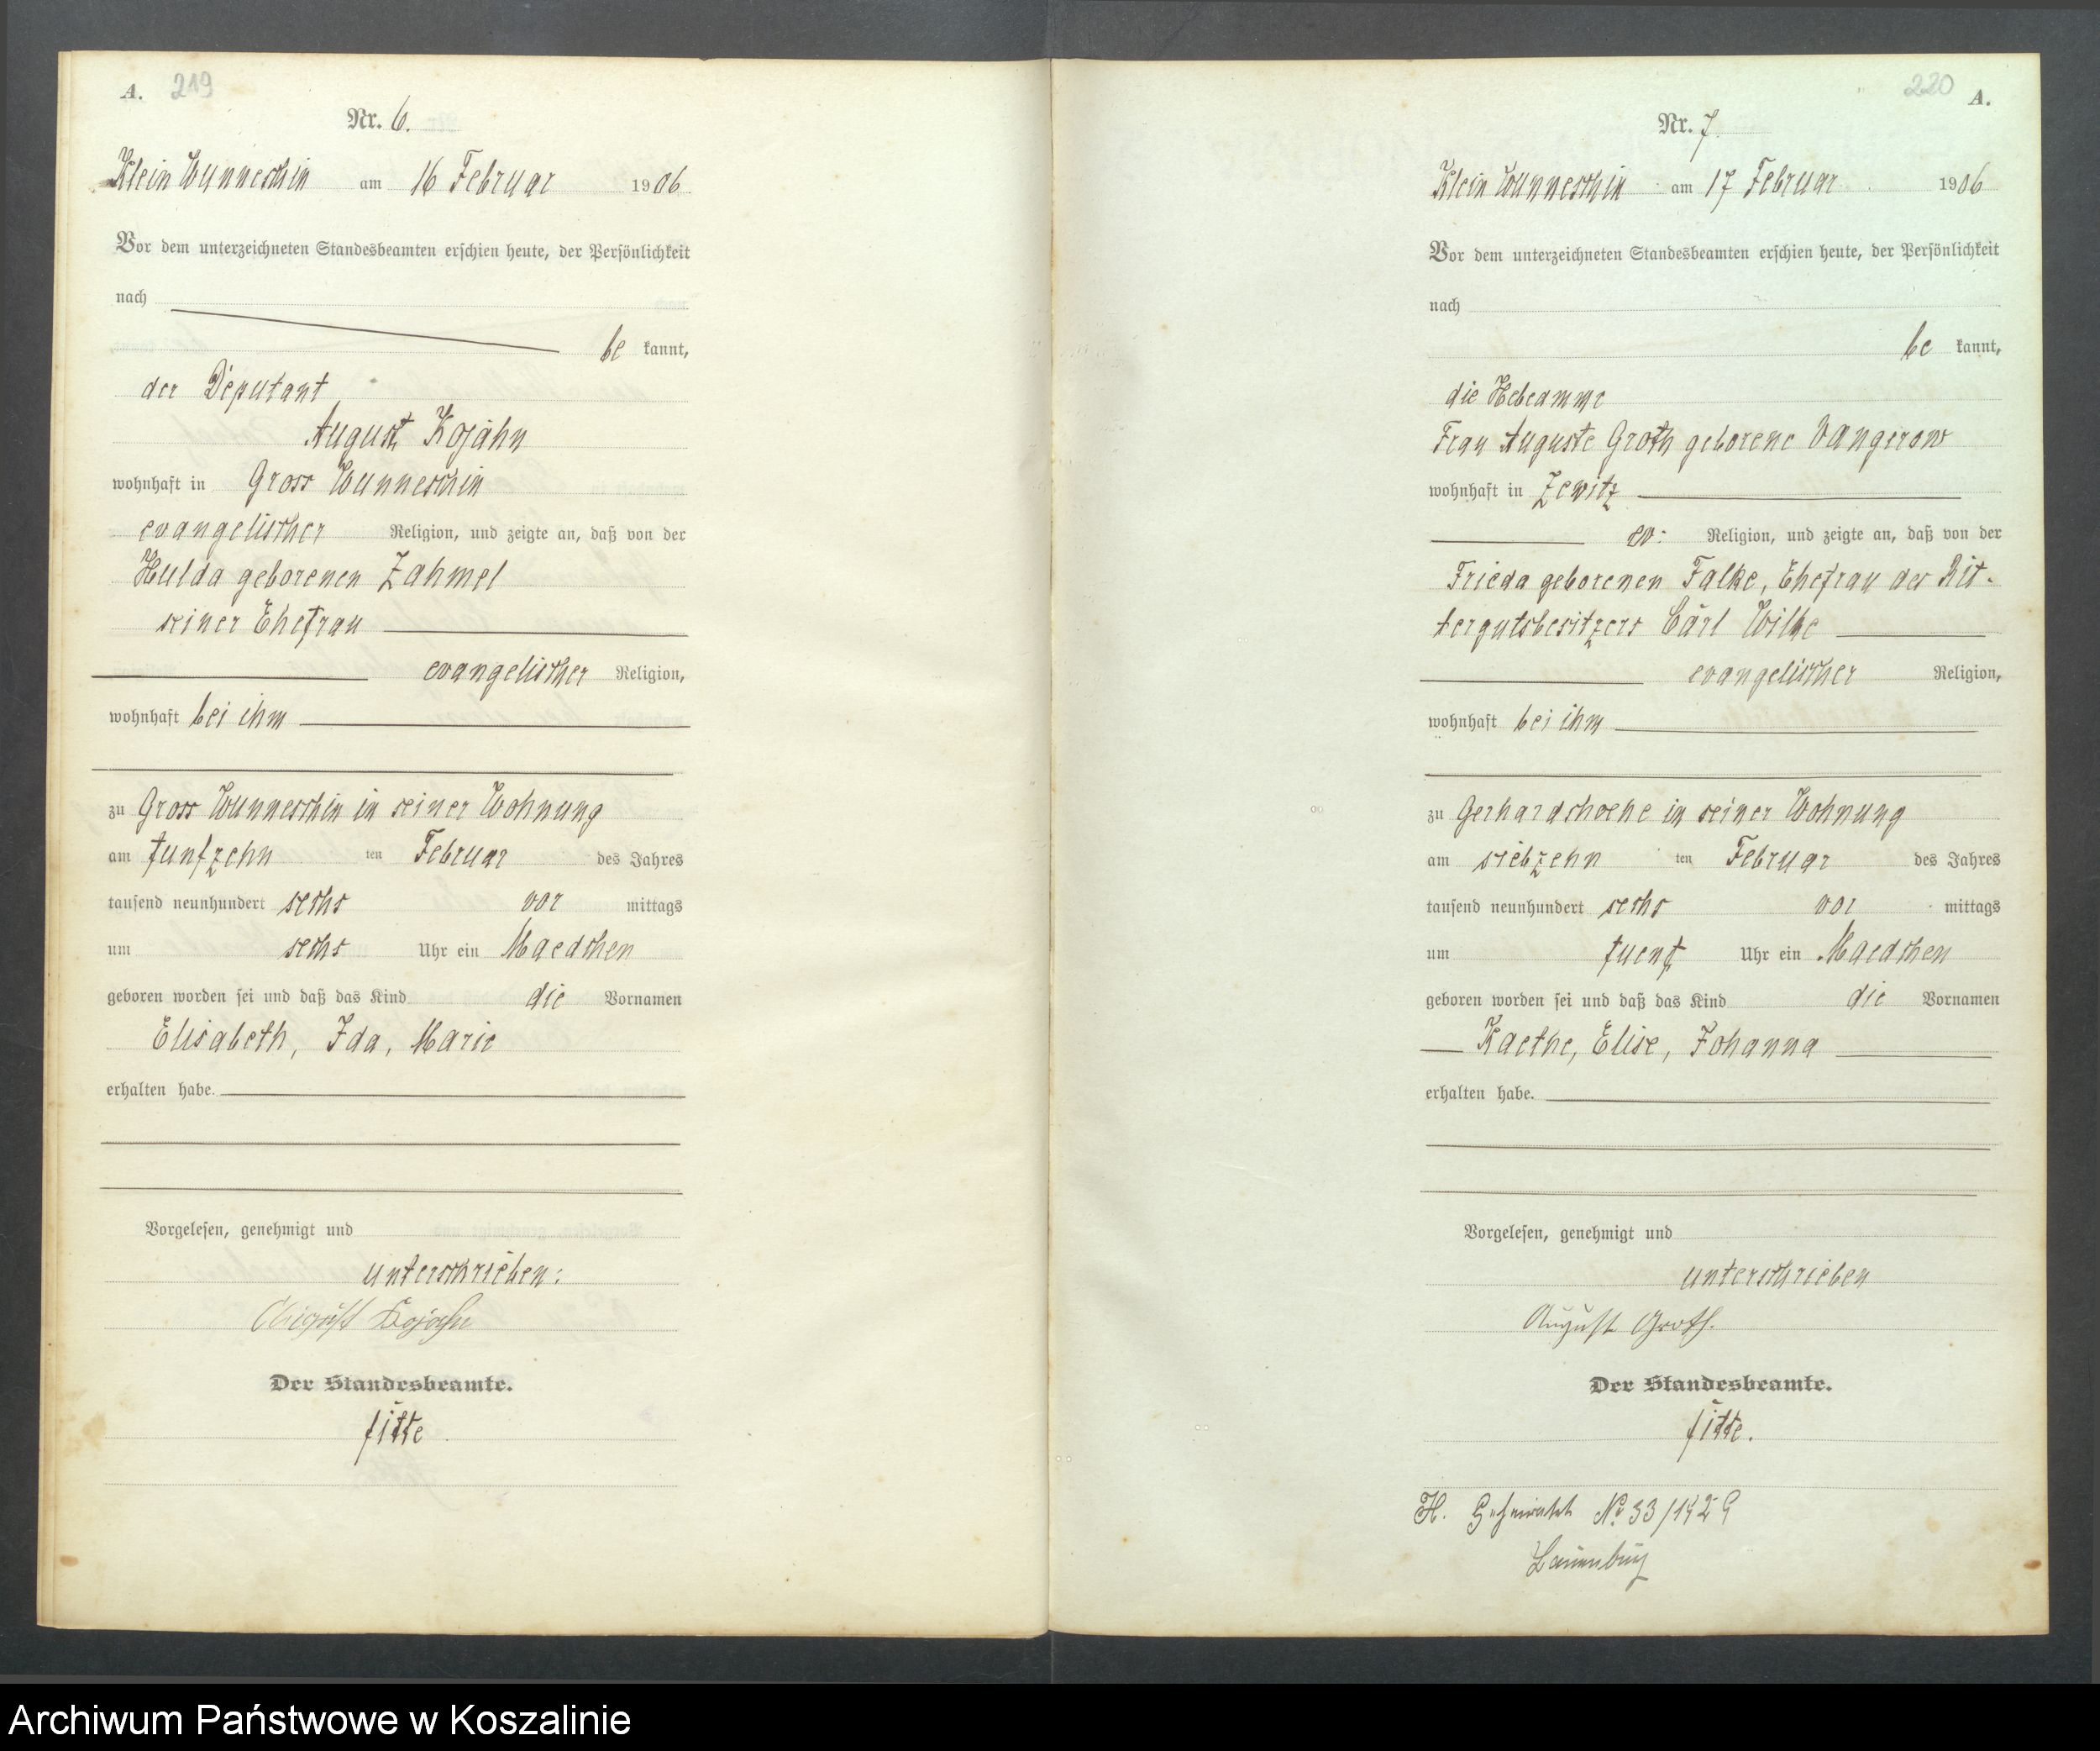 A. 219
Nr. 6.
Klein Wunneschin am 16 Februar 1906
Vor dem unterzeichneten Standesbeamten erschien heute, der Persönlichkeit
nach
be kannt,
der Deputant
August Kojahn
wohnhaft in Gross Wunneschin
evangelischer Religion, und zeigte an, daß von der
Hulda geborenen Zahmel
seiner Ehefrau
evangelischer Religion,
wohnhaft bei ihm
zu Gross Wunneschin in seiner Wohnung
am funfzehn ten Februar des Jahres
tausend neunhundert sechs vor mittags
um sechs Uhr ein Maedchen
geboren worden sei und daß das Kind die Vornamen
Elisabeth, Ida, Marie
erhalten habe.
Vorgelesen, genehmigt und
unterschrieben:
August Kojahn
Der Standesbeamte.
fitte
220 A.
Nr. 7.
Klein Wunneschin am 17 Februar 1906
Vor dem unterzeichneten Standesbeamten erschien heute, der Persönlichkeit
nach
be kannt,
die Hebeamme
Frau Auguste Groth geborene Vangerow
wohnhaft in Zewitz
ev: Religion, und zeigte an, daß von der
Frieda geborenen Falke, Ehefrau des Rit-
tergutsbesitzers Carl Wilke
evangelischer Religion,
wohnhaft bei ihm
zu Gerhardshoehe in seiner Wohnung
am siebzehn ten Februar des Jahres
tausend neunhundert sechs vor mittags
um fuenf Uhr ein Maedchen
geboren worden sei und daß das Kind die Vornamen
Kaethe, Elise, Johanna
erhalten habe.
Vorgelesen, genehmigt und
unterschrieben
August Groth.
Der Standesbeamte.
fitte.
H. Geheiratet No 33/1929
Lauenburg
Archiwum Państwowe w Koszalinie